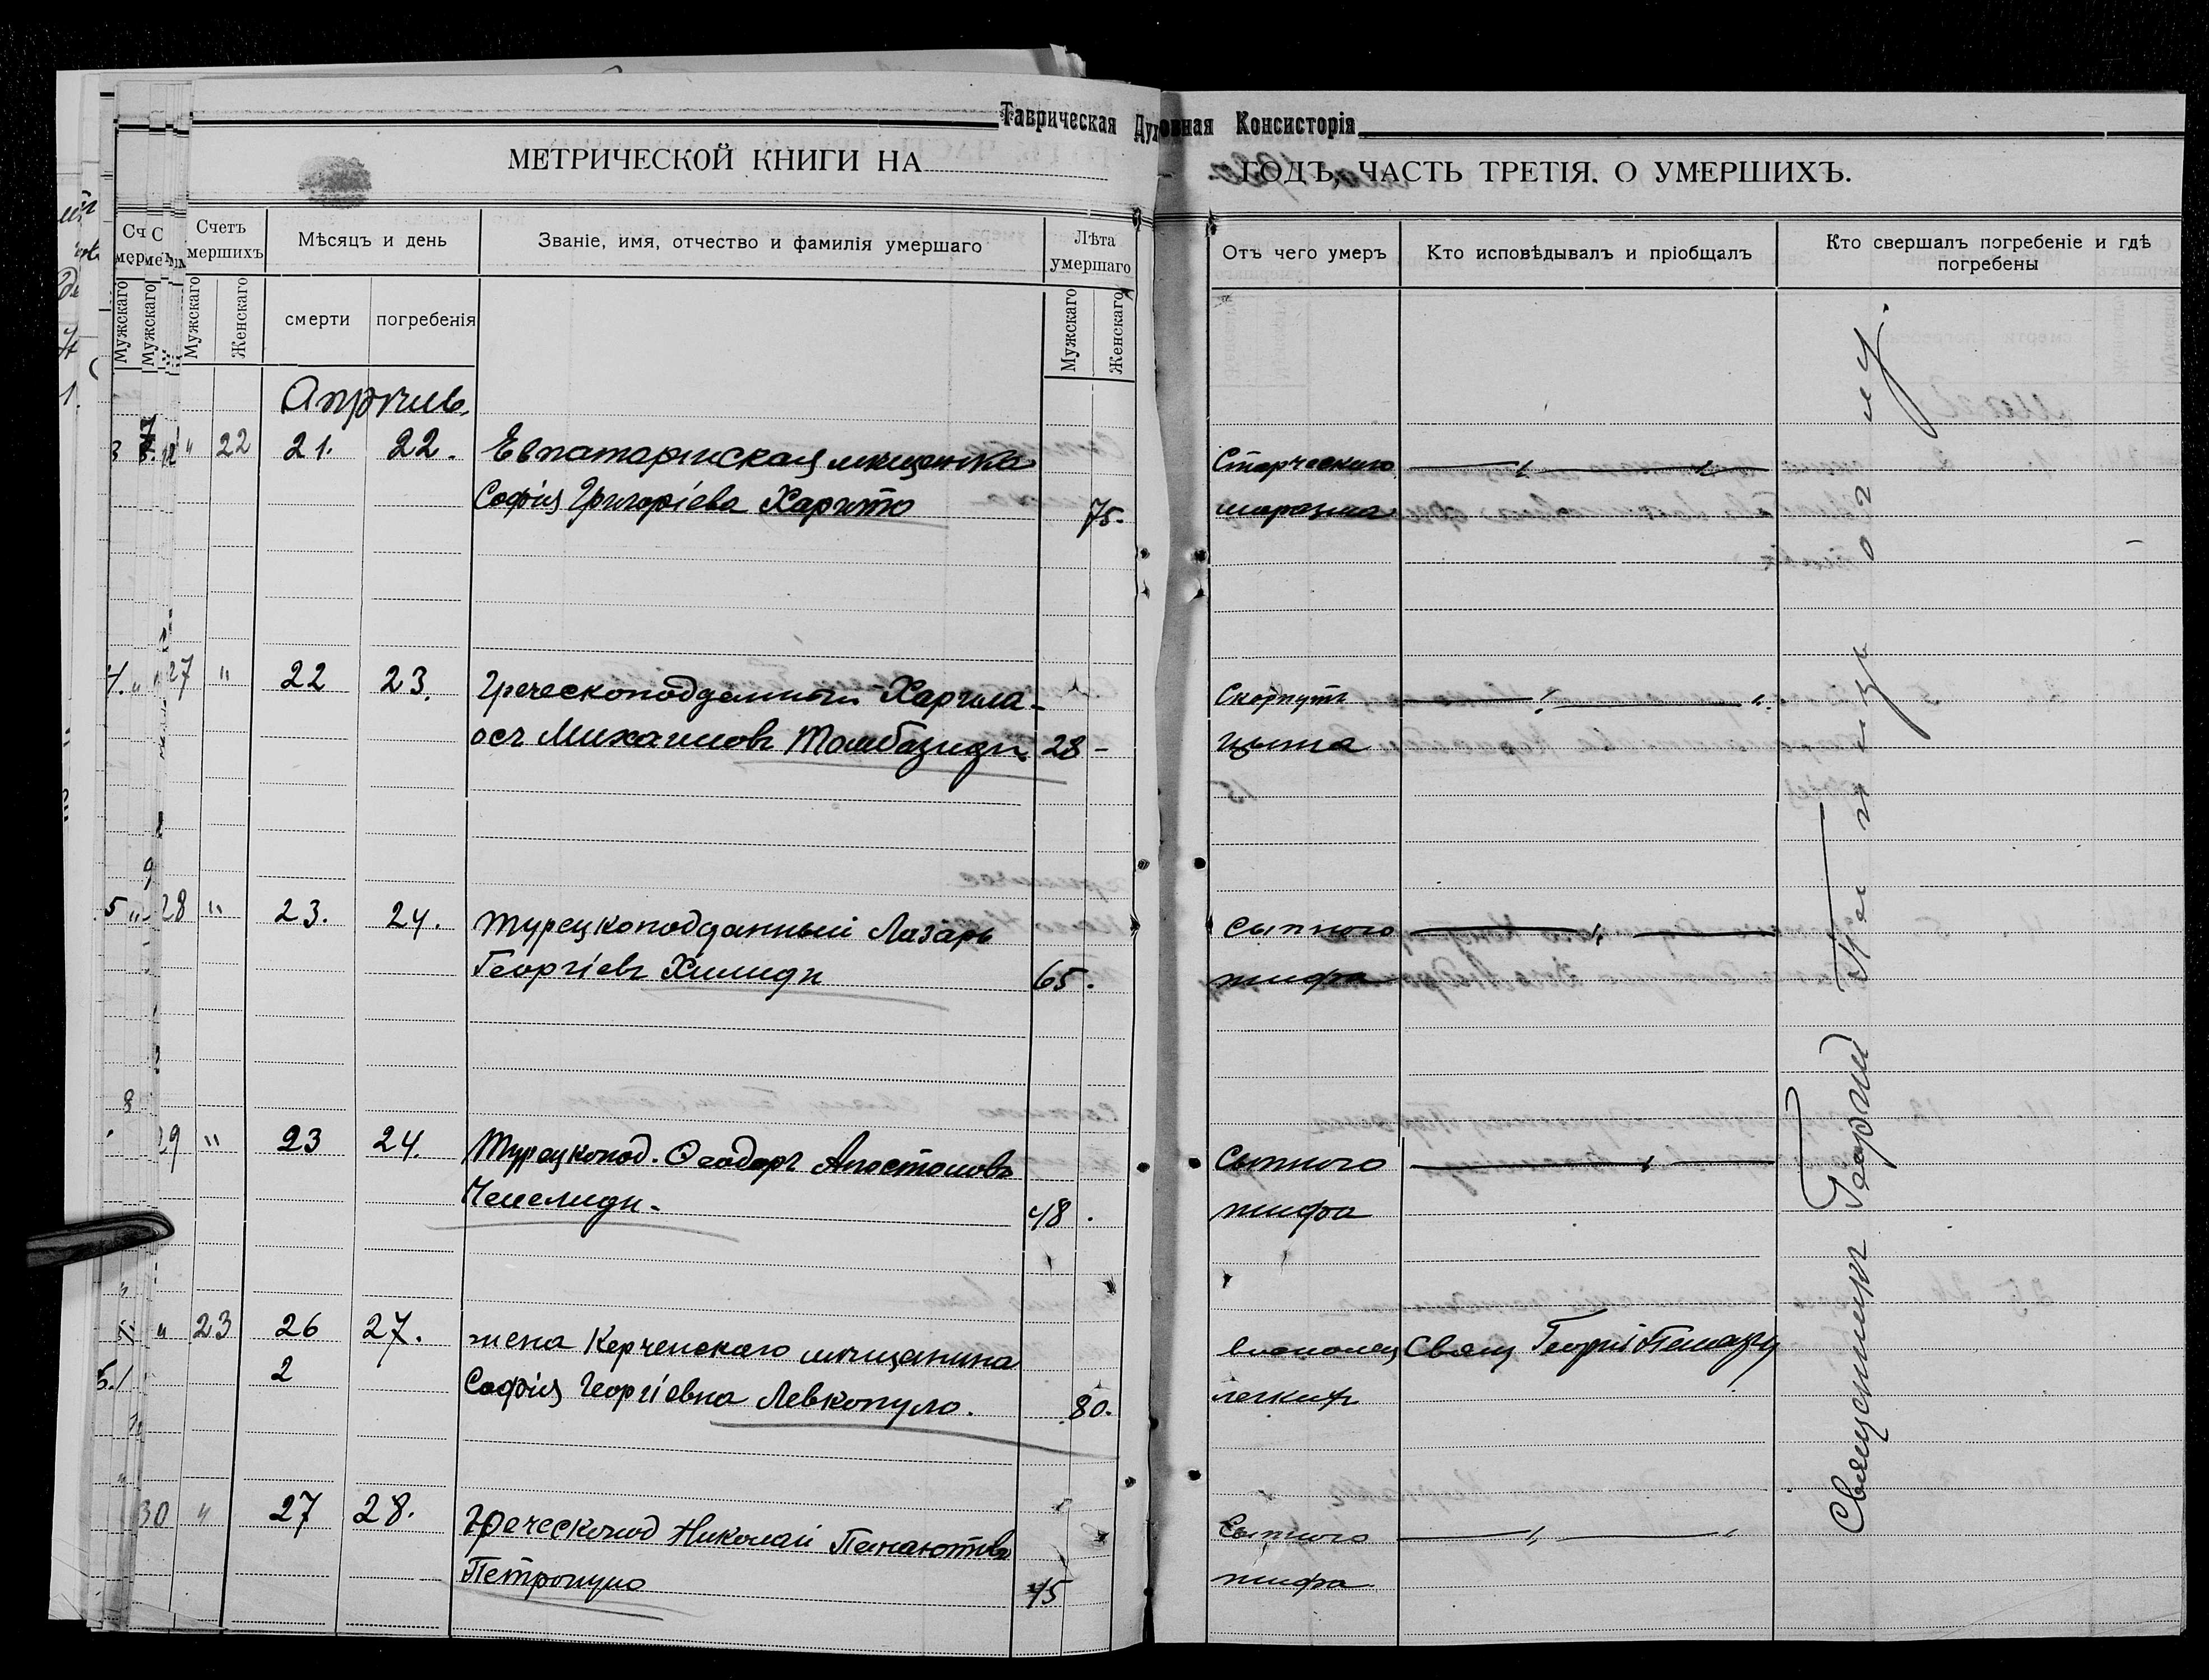 Таврическая Духовная Консисторія
МЕТРИЧЕСКОЙ КНИГИ НА ГОДЪ, ЧАСТЬ ТРЕТІЯ. О УМЕРШИХЪ.
Счетъ умершихъ
Мужскаго
Женскаго
Мѣсяцъ и день
смерти
погребенія
Званіе, имя, отчество и фамилія умершаго
Лѣта умершаго
Мужскаго
Женскаго
Отъ чего умеръ
Кто исповѣдывалъ и пріобщалъ
Кто свершалъ погребеніе и гдѣ погребены
Апрѣль.
" 22 21. 22. Евпаторійская мѣщанка Старческаго
Софія Григоріева Харито 75. маразма
27 " 22 23. Греческоподданный Харила-
осъ Михаиловъ Томбазиди 28 -
28 " 23. 24. Турецкоподданный Лазарь Сыпного
Георгіевъ Хилиди 65. тифа
29 " 23 24. Турецкопод. Ѳеодоръ Апостоловъ Сыпного
48. тифа
" 23 26 27. жена Керченскаго мѣщанина Свящ Георгій
2
Софія Георгіевна Левкопуло. 80. легкихъ
30 " 27 28. Греческопод Николай Панаіотовъ Сыпного
Петропуло 45 тифа
Священникъ Георгій